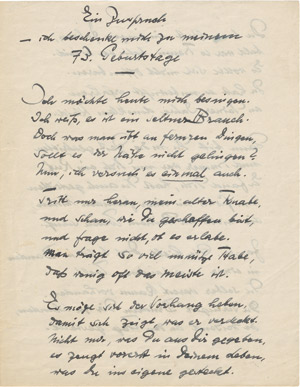 Ein Zuspruch
– ich beschenke mich zu meinem
73. Geburtstage
Ich möchte heute mich besingen.
Ich weiß, es ist ein seltner Brauch.
Doch was man übt an fernren Dingen,
sollt es der Nähe nicht gelingen?
Nun, ich versuch es einmal auch.
Tritt nur heran, mein alter Knabe,
und schau, wie du geschaffen bist,
und frage nicht, ob es erlabe.
Man trägt so viel unnütze Habe,
daß wenig oft das meiste ist.
Es möge sich der Vorhang heben,
damit sich zeigt, was er versteckt.
Nicht nur, was Du aus dir gegeben,
es zeugt vorerst in deinem Leben,
was du ins eigne gesteckt.